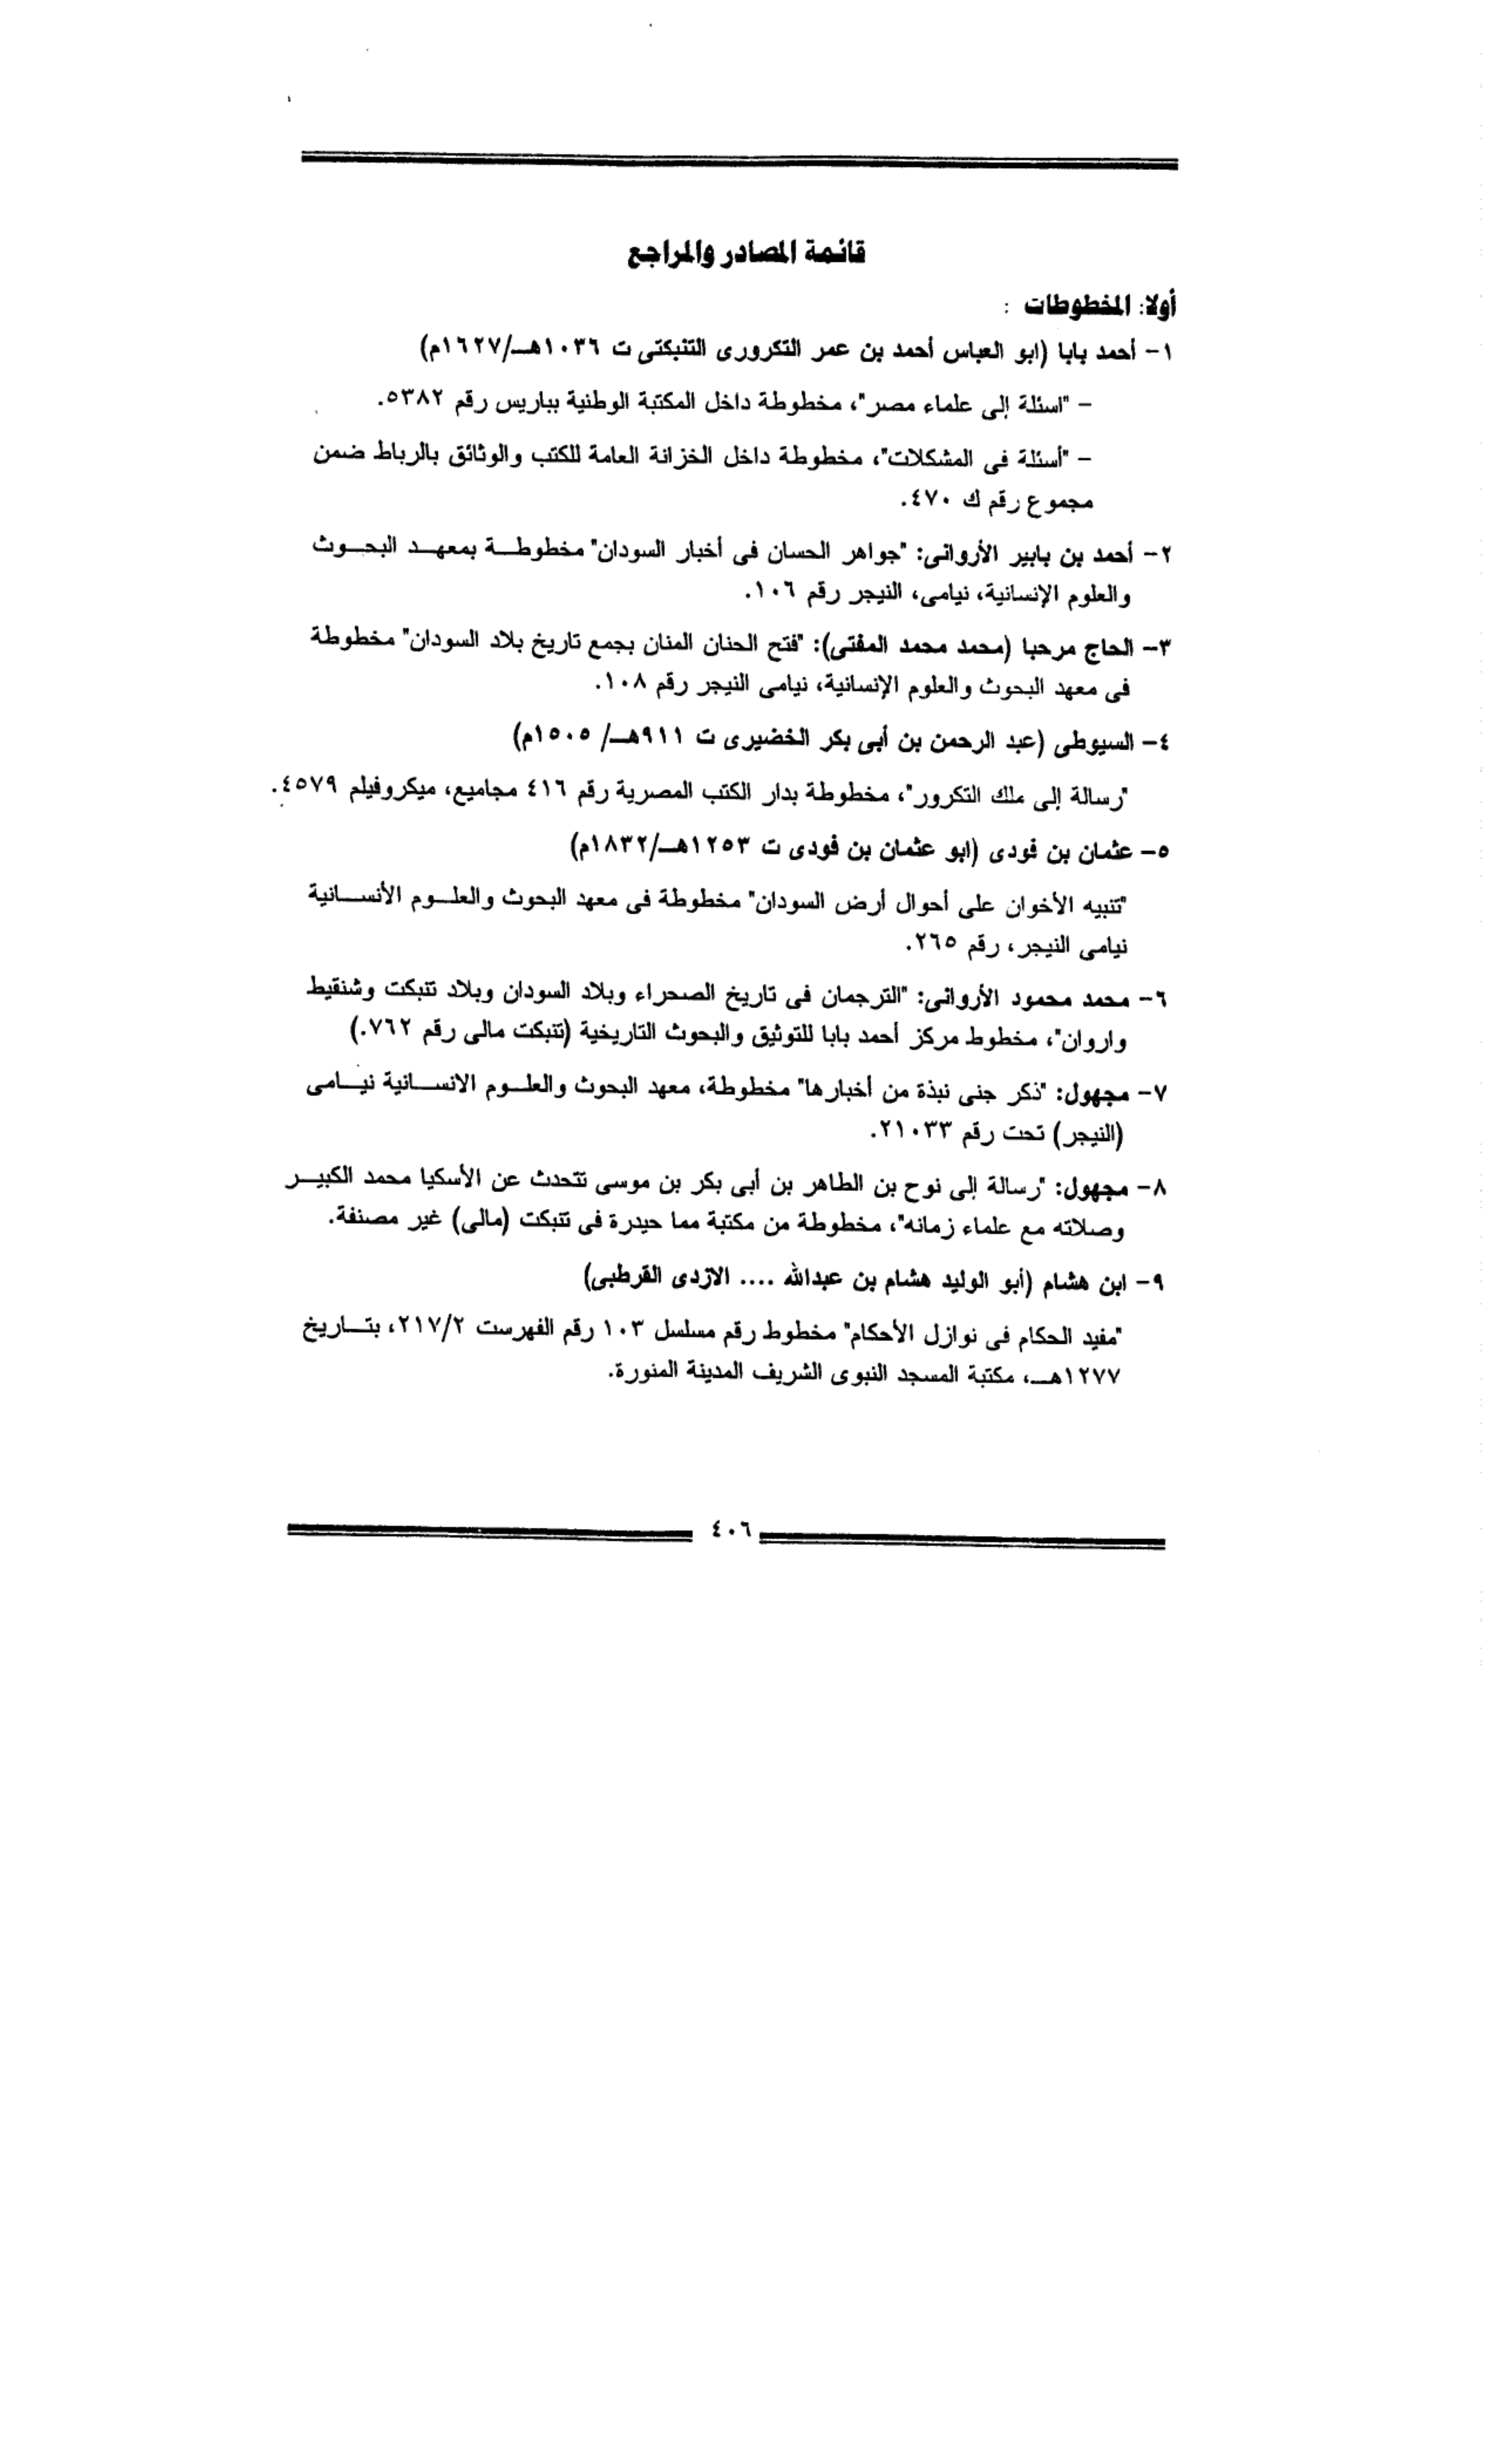 قائمة المصادر والمراجع
أولا: المخطوطات :
١- أحمد بابا (ابو العباس أحمد بن عمر التكرورى التنبكتى ت ١٠٣٦هـ/١٦٢٧م)
- "اسئلة إلى علماء مصر"، مخطوطة داخل المكتبة الوطنية بباريس رقم ٥٣٨٢.
- "أسئلة فى المشكلات"، مخطوطة داخل الخزانة العامة للكتب والوثائق بالرباط ضمن
مجموع رقم ك ٤٧٠.
٢- أحمد بن بابير الأروانى: "جواهر الحسان فى أخبار السودان" مخطوطة بمعهد البحوث
والعلوم الإنسانية، نيامى، النيجر رقم ١٠٦.
٣- الحاج مرحبا (محمد محمد المفتى): "فتح الحنان المنان بجمع تاريخ بلاد السودان" مخطوطة
فى معهد البحوث والعلوم الإنسانية، نيامى النيجر رقم ١٠٨.
٤- السيوطى (عبد الرحمن بن أبى بكر الخضيرى ت ٩١١هـ/ ١٥٠٥م)
"رسالة إلى ملك التكرور"، مخطوطة بدار الكتب المصرية رقم ٤١٦ مجاميع، ميكروفيلم ٤٥٧٩.
٥- عثمان بن فودى (ابو عثمان بن فودى ت ١٢٥٣هـ/١٨٣٢م)
"تنبيه الأخوان على أحوال أرض السودان" مخطوطة فى معهد البحوث والعلوم الأنسانية
نيامى النيجر، رقم ٢٦٥.
٦- محمد محمود الأروانى: "الترجمان فى تاريخ الصحراء وبلاد السودان وبلاد تنبكت وشنقيط
واروان"، مخطوط مركز أحمد بابا للتوثيق والبحوث التاريخية (تنبكت مالى رقم ٧٦٢.)
٧- مجهول: "ذكر جنى نبذة من أخبارها" مخطوطة، معهد البحوث والعلوم الانسانية نيامى
(النيجر) تحت رقم ٢١٠٣٣.
٨- مجهول: "رسالة إلى نوح بن الطاهر بن أبى بكر بن موسى تتحدث عن الأسكيا محمد الكبير
وصلاته مع علماء زمانه"، مخطوطة من مكتبة مما حيدرة فى تنبكت (مالى) غير مصنفة.
٩- ابن هشام (أبو الوليد هشام بن عبدالله .... الازدى القرطبى)
"مفيد الحكام فى نوازل الأحكام" مخطوط رقم مسلسل ١٠٣ رقم الفهرست ٢١٧/٢، بتاريخ
١٢٧٧هـ، مكتبة المسجد النبوى الشريف المدينة المنورة.
٤٠٦